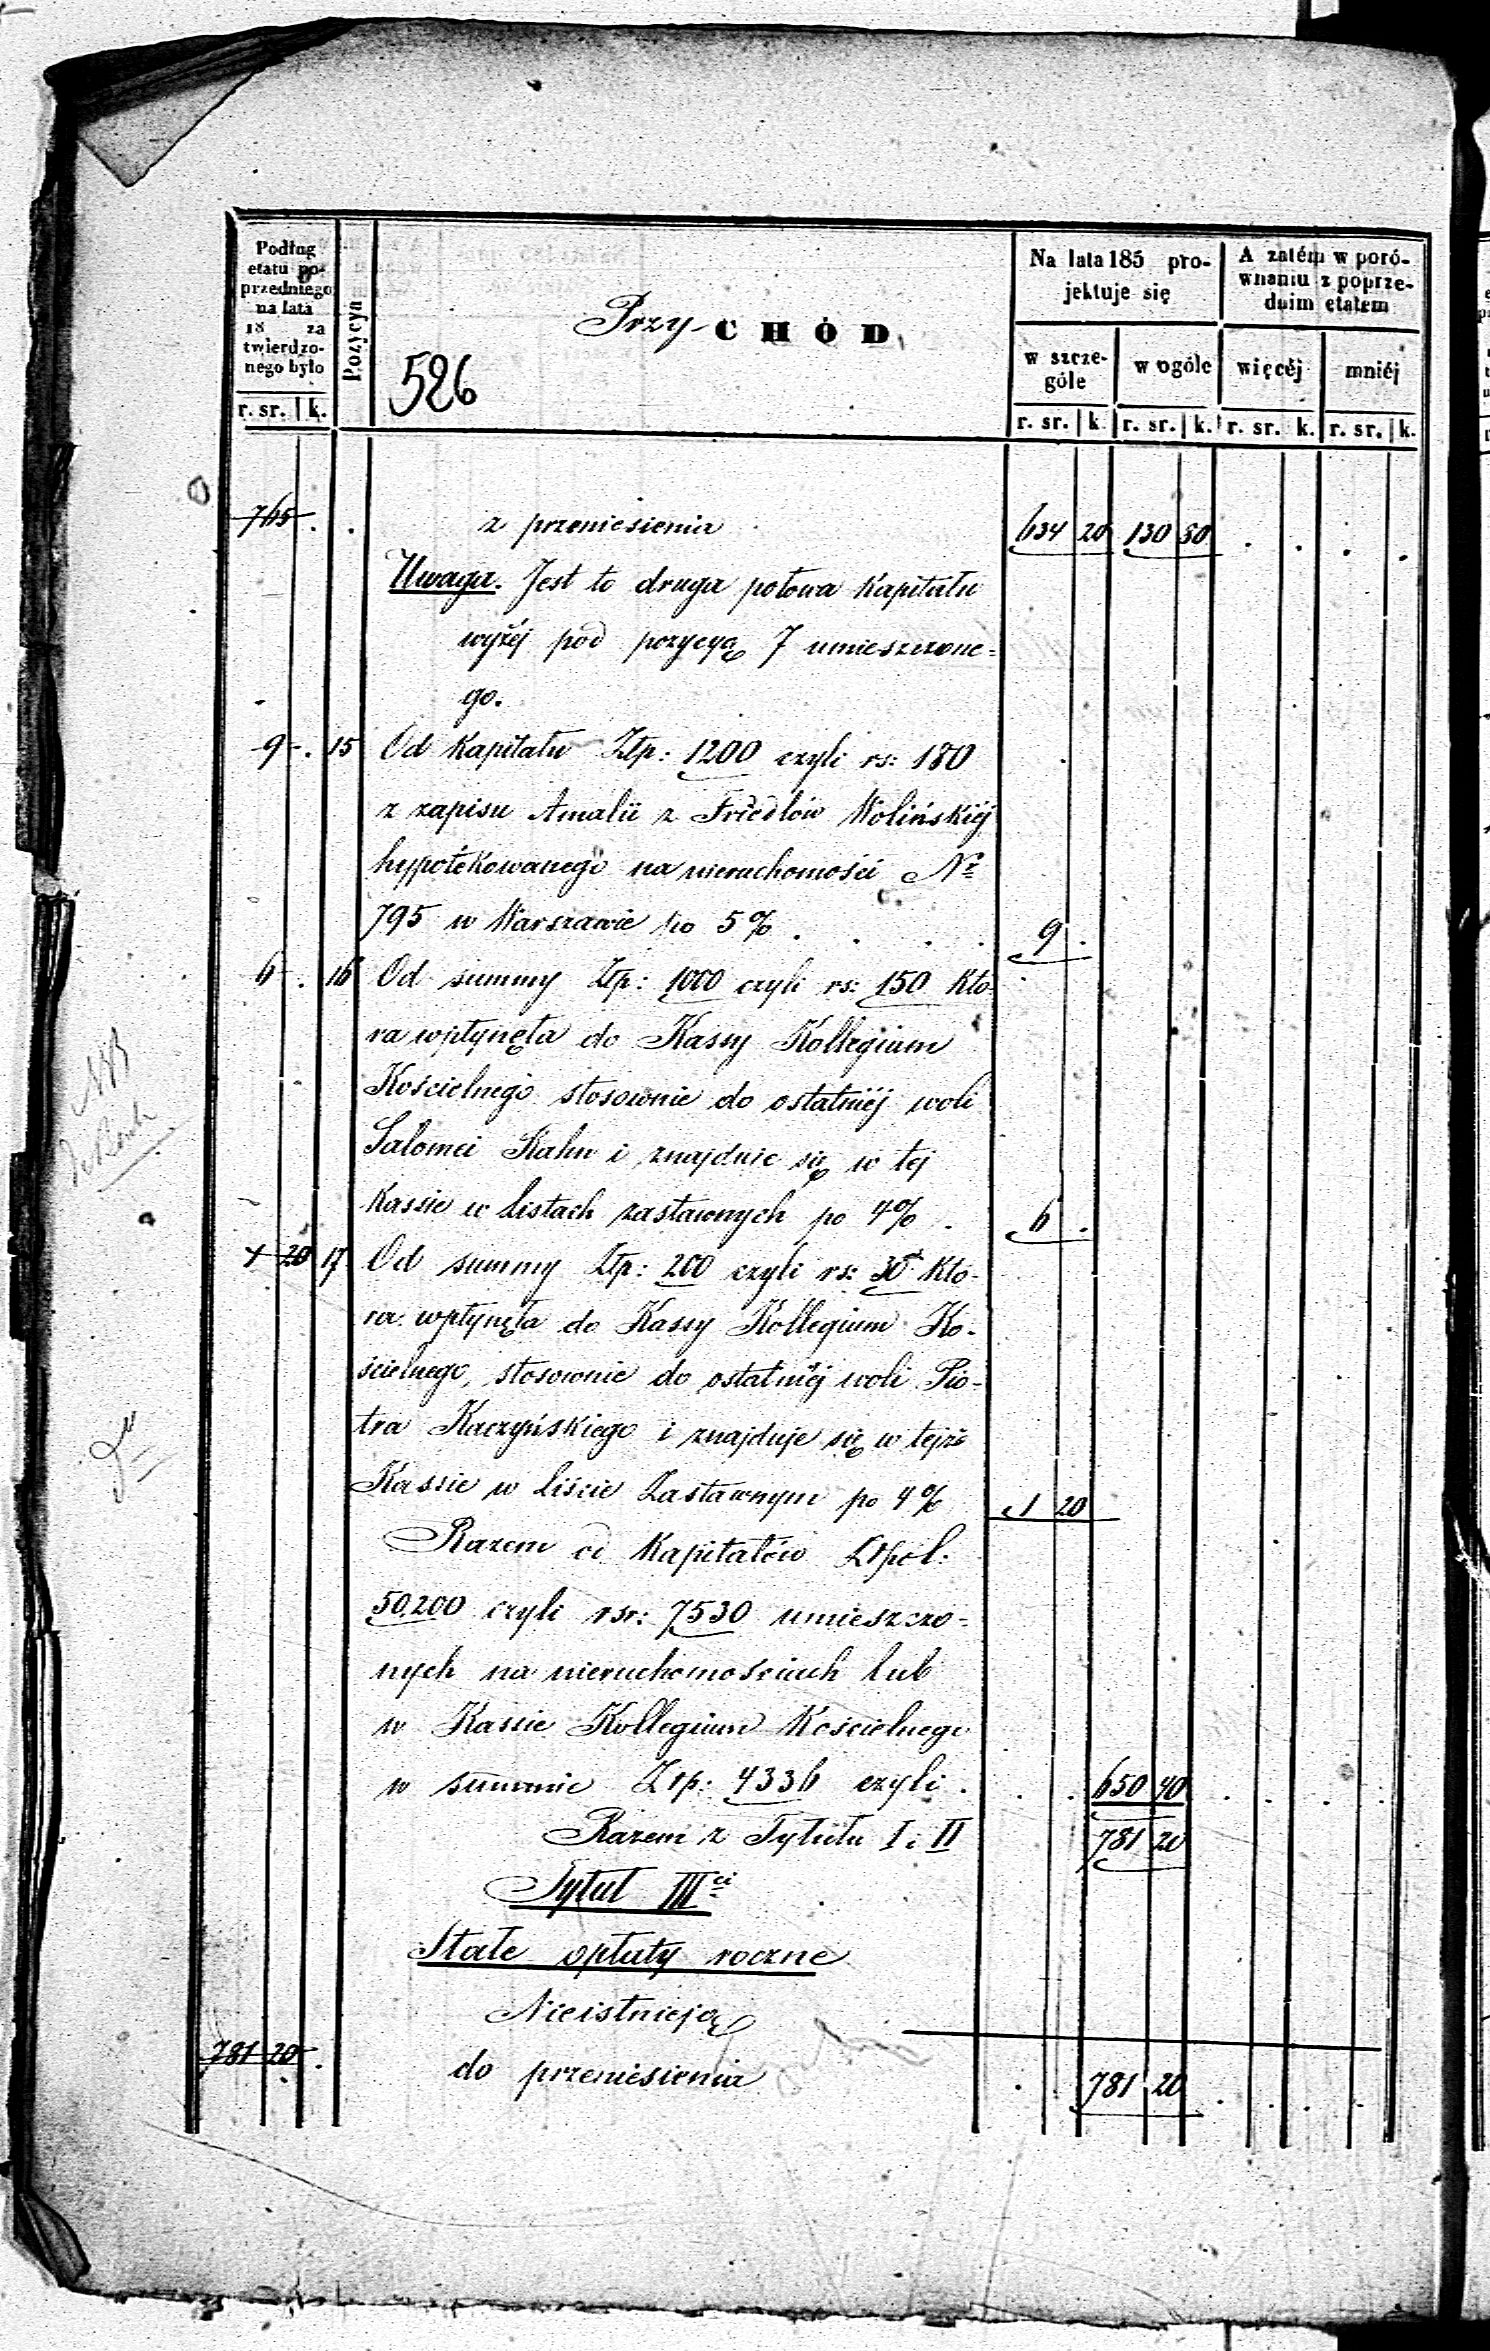 Podług
etatu po-
przedniego
na lata
18 za
twierdzo-
nego było
r. sr. k.
Pozycya
Przy-CHÓD
526
Na lata 185 pro-
jektuje się
w szcze-
góle
w ogóle
r. sr. k. r. sr. k.
A zatém w poró-
wnaniu z poprze-
dnim etatem
więcéj mniéj
r. sr. k. r. sr. k.
765 . . z przeniesienia 634 20 130 80 . . . .
Uwaga. Jest to druga połowa Kapitału
wyżéj pod pozycyą 7 umieszczone=
go.
9 . 15 Od Kapitału Złp: 1200 czyli rs: 180
z zapisu Amalii z Friedlów Wolińskiéj
hypotekowanego na nieruchomości Nr
795 w Warszawie po 5% . . . . 9 .
6 . 16 Od summy Złp: 1000 czyli rs: 150 któ-
ra wpłynęła do Kassy Kollegium
Kościelnego stosownie do ostatniéj woli
Salomei Kahn i znajduje się w tej
Kassie w listach zastawnych po 4% . 6 .
1 20 17 Od summy Złp: 200 czyli rs: 30 któ-
ra wpłynęła do Kassy Kollegium Ko-
ścielnego, stosownie do ostatniéj woli Pio-
tra Kaczyńskiego i znajduje się w tejże
Kassie w liście Zastawnym po 4% 1 20
Razem od Kapitałów Złpol:
50,200 czyli rsr: 7530 umieszczo-
nych na nieruchomościach lub
w Kassie Kollegium Kościelnego
w summie Złp: 4336 czyli . . . 650 40 . . . .
Razem z Tytułu I i II 781 20
Tytuł IIIci
Stałe opłaty roczne
Nieistnieją
781 20 . do przeniesienia . . 781 20 . . . .